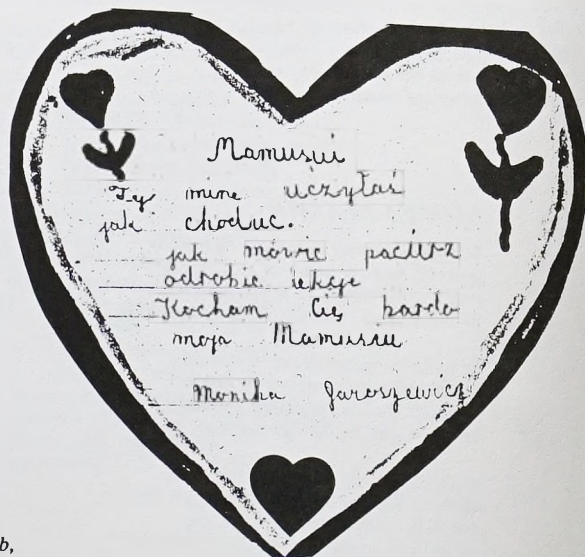 Mamusui
Ty mine uczyłaś
jak choduc.
jak mówic pacirz
odrobic lekcje
Kocham Cię bardo
moja Mamusiu
Monika Jaroszewicz
b,